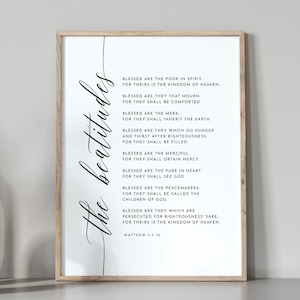 the beatitudes
BLESSED ARE THE POOR IN SPIRIT,
FOR THEIRS IS THE KINGDOM OF HEAVEN
BLESSED ARE THEY THAT MOURN,
FOR THEY SHALL BE COMFORTED.
BLESSED ARE THE MEEK:
FOR THEY SHALL INHERIT THE EARTH.
BLESSED ARE THEY WHICH DO HUNGER
AND THIRST AFTER RIGHTEOUSNESS:
FOR THEY SHALL BE FILLED.
BLESSED ARE THE MERCIFUL:
FOR THEY SHALL OBTAIN MERCY.
BLESSED ARE THE PURE IN HEART:
FOR THEY SHALL SEE GOD
BLESSED ARE THE PEACEMAKERS:
FOR THEY SHALL BE CALLED THE
CHILDREN OF GOD.
BLESSED ARE THEY WHICH ARE
PERSECUTED FOR RIGHTEOUSNESS' SAKE:
FOR THEIRS IS THE KINGDOM OF HEAVEN.
MATTHEW 5:3-10